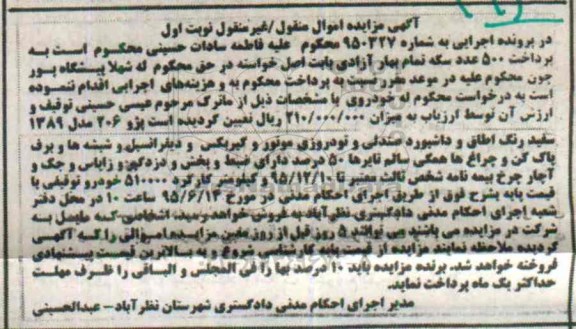 آگهی مزایده اموال منقول /غیرمنقول نوبت اول
در پرونده اجرایی به شماره ۹۵۰۳۲۷ محکوم علیه فاطمه سادات حسینی محکوم است به
پرداخت ۵۰۰ عدد سکه تمام بهار آزادی بابت اصل خواسته در حق محکوم له شهلا پیشگاه پور
چون محکوم علیه در موعد مقرر نسبت به پرداخت محکوم به و هزینه‌های اجرایی اقدام ننموده
است به درخواست محکوم له خودروی با مشخصات ذیل از ماترک مرحوم عیسی حسینی توقیف و
ارزش آن توسط ارزیاب به میزان ۲۱۰/۰۰۰/۰۰۰ ریال تعیین گردیده است پژو ۲۰۶ مدل ۱۳۸۹
سفید رنگ اطاق و داشبورد صندلی و تودروزی موتور و گیربکس و دیفرانسیل و شیشه ها و برف
پاک کن و چراغ ها همگی سالم تایرها ۵۰ درصد دارای ضبط و پخش و دزدگیر و زاپاس و جک و
آچار چرخ بیمه نامه شخص ثالث معتبر تا ۹۵/۱۲/۱۰ و کیلومتر کارکرد ۵۱۰۰۰۰ خودرو توقیفی با
قیمت پایه بشرح فوق از طریق اجرای احکام مدنی در مورخ ۹۵/۶/۱۳ ساعت ۱۰ در محل دفتر
شعبه اجرای احکام مدنی دادگستری نظرآباد به فروش خواهد رسید، اشخاصی که مایل به
شرکت در مزایده می باشند می توانند ۵ روز قبل از روز معین مزایده اموالی را که آگهی
گردیده ملاحظه نمایند مزایده از قیمت پایه کارشناسی شروع و به بالاترین قیمت پیشنهادی
فروخته خواهد شد. برنده مزایده باید ۱۰ درصد بها را فی المجلس و الباقی را ظرف مهلت
حداکثر یک ماه پرداخت نماید.
مدیر اجرای احکام مدنی دادگستری شهرستان نظرآباد – عبدالحسینی